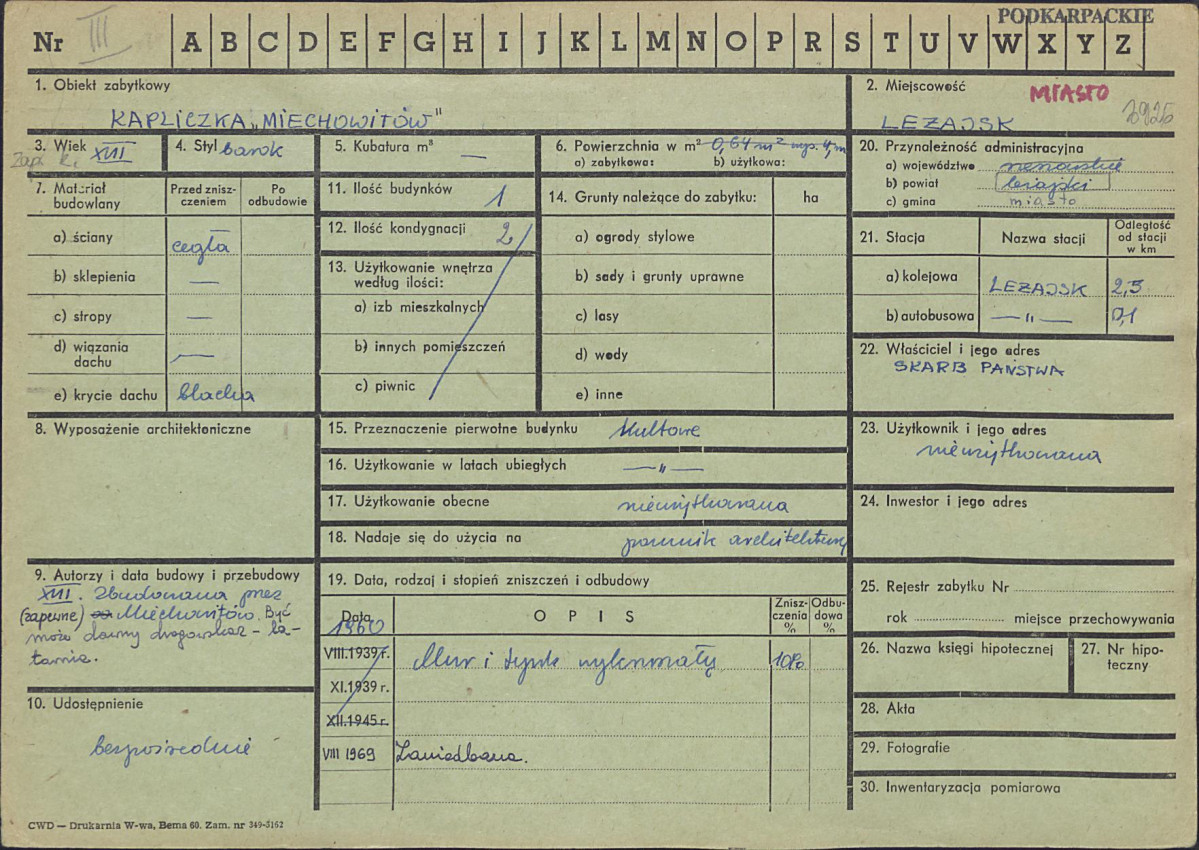 PODKARPACKIE
Nr III A B C D E F G H I J K L M N O P R S T U V W X Y Z
1. Obiekt zabytkowy
KAPLICZKA „MIECHOWITÓW"
2. Miejscowość
MIASTO
LEŻAJSK
3. Wiek XVII
4. Styl barok
5. Kubatura m³ —
6. Powierzchnia w m² 0,64 m²
a) zabytkowa: b) użytkowa:
7. Materiał budowlany
Przed zniszczeniem
Po odbudowie
a) ściany cegła
b) sklepienia —
c) stropy —
d) wiązania dachu —
e) krycie dachu blacha
8. Wyposażenie architektoniczne
9. Autorzy i data budowy i przebudowy
XVII. Zbudowana przez
(zapewne) Miechowitów. Być
może dawny drogowskaz – la-
tarnia.
10. Udostępnienie
bezpośrednie
11. Ilość budynków 1
12. Ilość kondygnacji 2
13. Użytkowanie wnętrza
według ilości:
a) izb mieszkalnych
b) innych pomieszczeń
c) piwnic
14. Grunty należące do zabytku: ha
a) ogrody stylowe
b) sady i grunty uprawne
c) lasy
d) wody
e) inne
15. Przeznaczenie pierwotne budynku kultowe
16. Użytkowanie w latach ubiegłych —"—
17. Użytkowanie obecne nieużytkowana
18. Nadaje się do użycia na pomnik architektury
19. Data, rodzaj i stopień zniszczeń i odbudowy
Data
O P I S
Zniszczenia %
Odbudowa %
1960
VIII.1939 r. Mur i tynk wykruszały 10%
XI.1939 r.
XII.1945 r.
VIII 1969 Zaniedbana.
20. Przynależność administracyjna
a) województwo rzeszowskie
b) powiat leżajski
c) gmina miasto
21. Stacja
Nazwa stacji
Odległość od stacji w km
a) kolejowa LEŻAJSK 2,5
b) autobusowa —"— 0,1
22. Właściciel i jego adres
SKARB PAŃSTWA
23. Użytkownik i jego adres
nieużytkowana
24. Inwestor i jego adres
25. Rejestr zabytku Nr
rok miejsce przechowywania
26. Nazwa księgi hipotecznej
27. Nr hipoteczny
28. Akta
29. Fotografie
30. Inwentaryzacja pomiarowa
CWD — Drukarnia W-wa, Bema 60. Zam. nr 349-5162